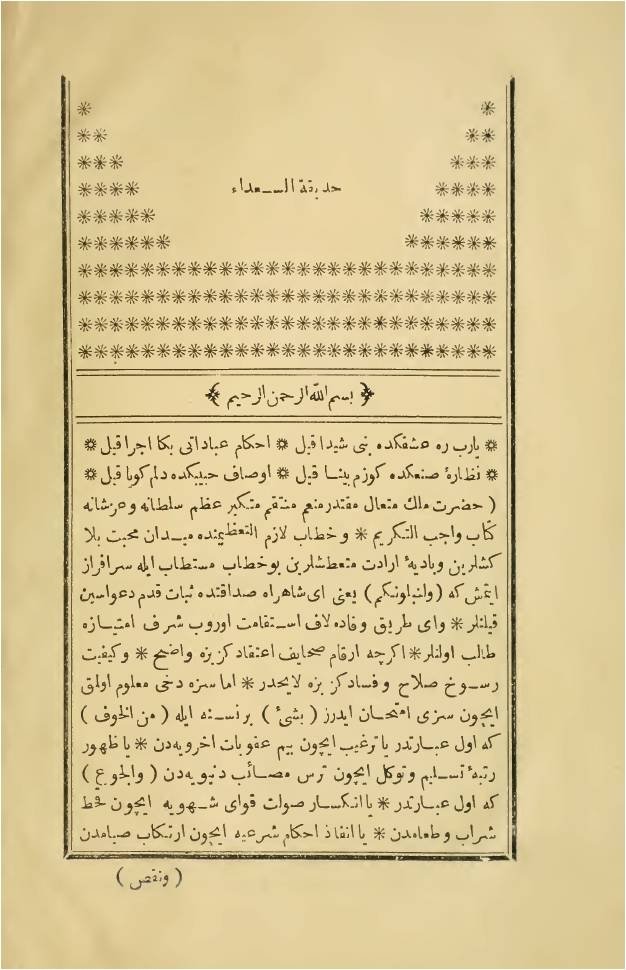 حديقة السعداء
بسم الله الرحمن الرحيم
❊ يارب ره عشقكده بنى شيدا قيل ❊ احكام عباداتى بكا اجرا قيل ❊
❊ نظارهٔ صنعكده كوزم بينا قيل ❊ اوصاف حبيبكده دلم كويا قيل ❊
( حضرت ملك متعال مقتدر منعم منتقم متكبر عظم سلطانه وعز شانه
كتاب واجب التكريم ❊ وخطاب لازم التعظيمنده ميدان محبت بلا
كشلرين وباديهٔ ارادت متعطشلرين بوخطاب مستطاب ايله سرافراز
ايتمش كه (ولنبلونكم) يعنى اى شاهراه صداقتده ثبات قدم دعواسين
قيلنلر ❊ واى طريق وفاده لاف استقامت اوروب شرف امتيازه
طالب اولنلر ❊ اكرچه ارقام صحايف اعتقادكز بزه واضح ❊ وكيفيت
رسوخ صلاح وفسادكز بزه لايحدر ❊ اما سزه دخى معلوم اولمق
ايچون سزى امتحان ايدرز ( بشئ ) برنسنه ايله ( من الخوف )
كه اول عبارتدر يا ترغيب ايچون بيم عقوبات اخرويه‌دن ❊ يا ظهور
رتبهٔ تسليم وتوكل ايچون ترس مصائب دنيويه‌دن ( والجوع )
كه اول عبارتدر ❊ يا انكسار صوات قواى شهويه ايچون قحط
شراب وطعامدن ❊ يا انفاذ احكام شرعيه ايچون ارتكاب صيامدن
( ونقص )